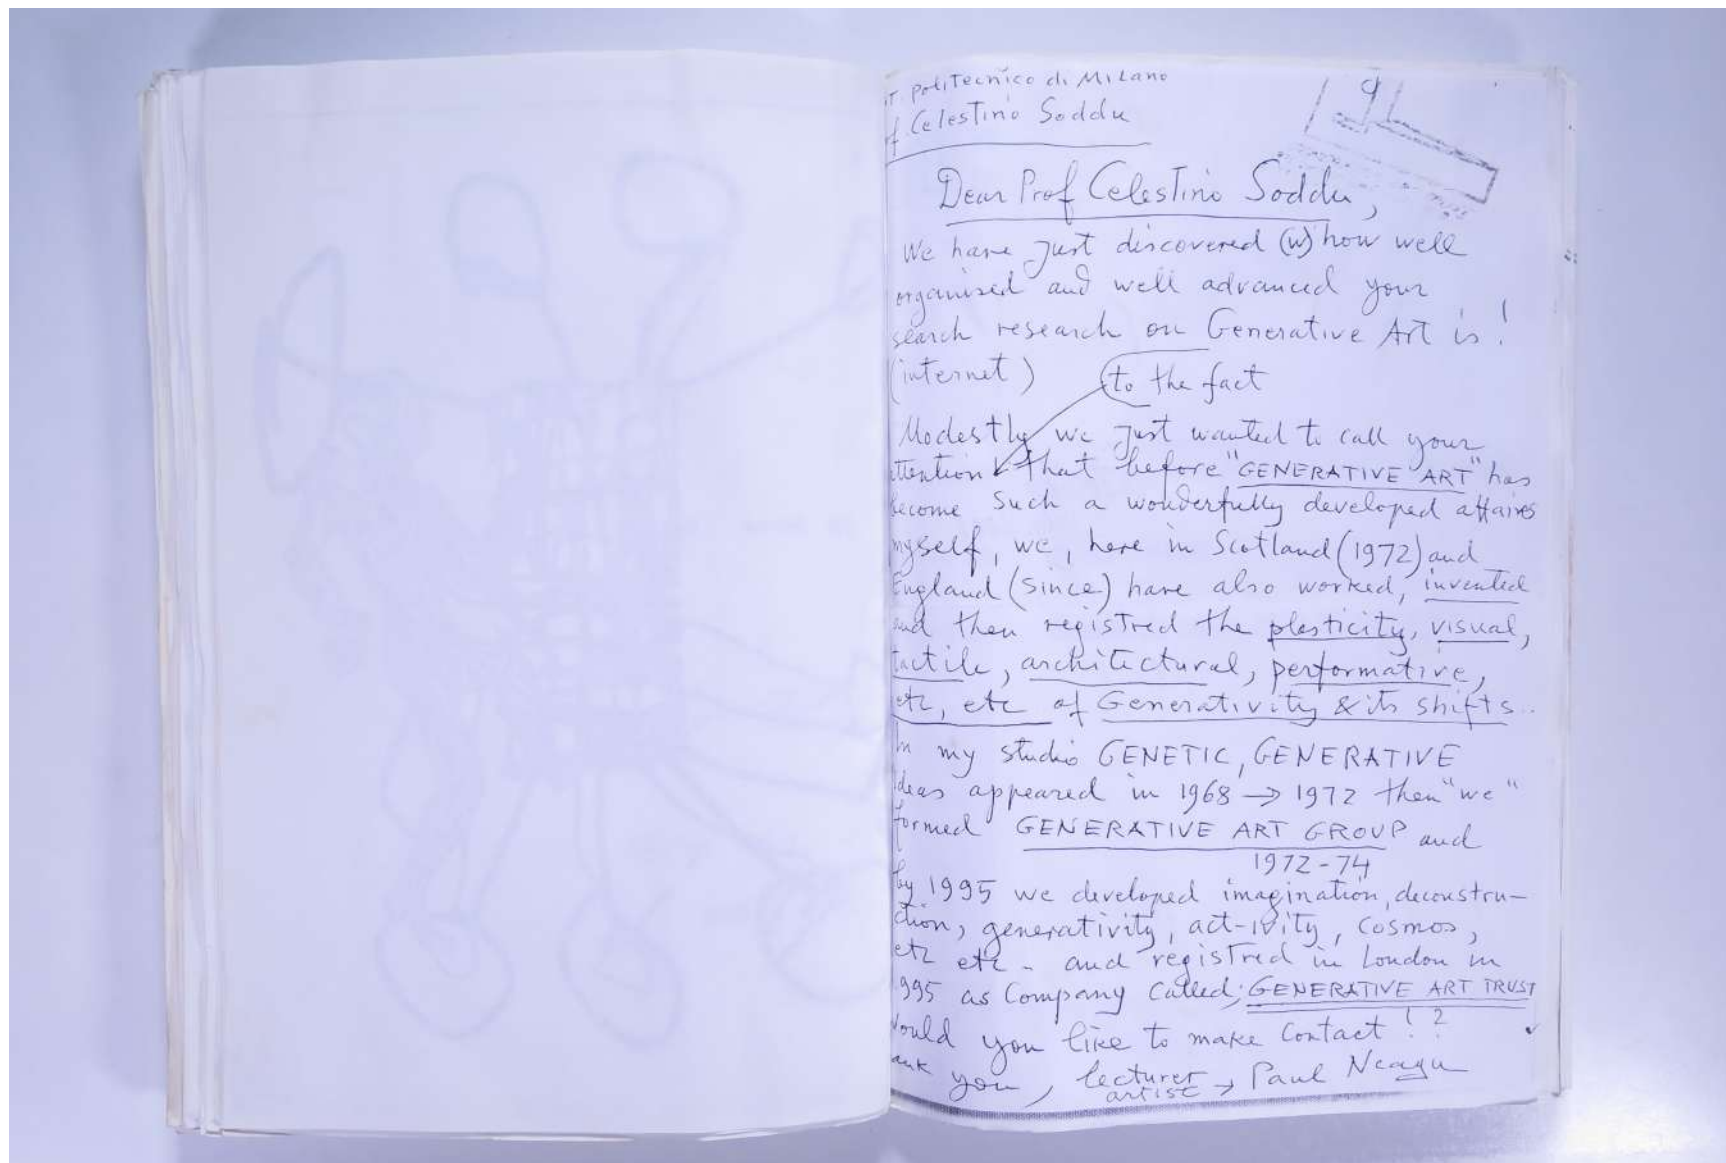 Politecnico di Milano
Celestino Soddu
Dear Prof Celestino Soddu,
We have just discovered (w) how well
organised and well advanced your
search research on Generative Art is!
(internet) to the fact
Modestly we just wanted to call your
attention that before "GENERATIVE ART" has
become such a wonderfully developed affaires
myself, we, here in Scotland (1972) and
England (since) have also worked, invented
and then registred the plasticity, visual,
tactile, architectural, performative,
etc, etc of Generativity & its shifts..
In my studio GENETIC, GENERATIVE
ideas appeared in 1968 → 1972 then "we"
formed GENERATIVE ART GROUP and
1972-74
by 1995 we developed imagination, deconstru-
ction, generativity, act-ivity, cosmos,
etc etc - and registred in London in
1995 as Company called; GENERATIVE ART TRUST
Would you like to make contact!?
you, lecturer → Paul Neagu
artist